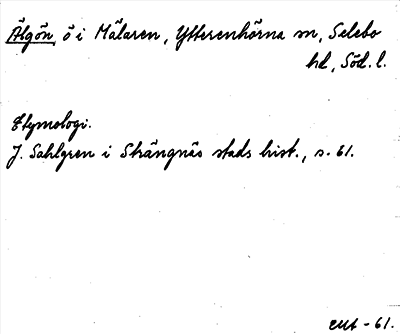 Älgön, ö i Mälaren, Ytterenhörna sn, Selebo
hd, Söd. l.
Etymologi.
J. Sahlgren i Strängnäs stads hist., s. 61.
-61.